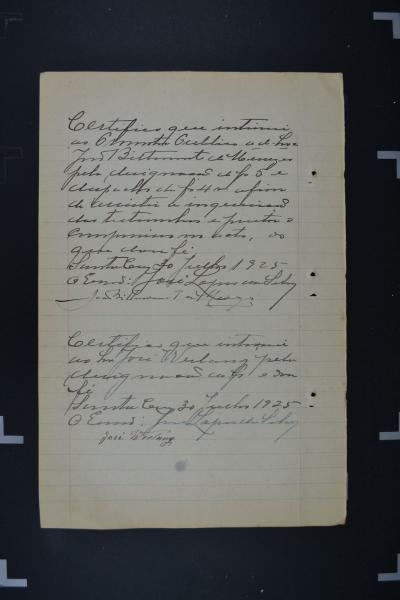 Certifico que intimei
ao Promotor Publico ad hoc
José Bittencourt de Menezes
pela designação de fs 5 e
despacho de fs 4 v afim
de assistir a inquirição
das testemunhas e prestar o
compromisso no acto, do
que dou fé.
Santa Cruz 30 Julho 1925
O Escrivão: José Lopes da Silva
José Bittencourt de Menezes
Certifico que intimei
ao José Werlang pela
designação de fs e dou
fé
Santa Cruz 30 Julho 1925.
O Escrivão: José Lopes da Silva
José Werlang